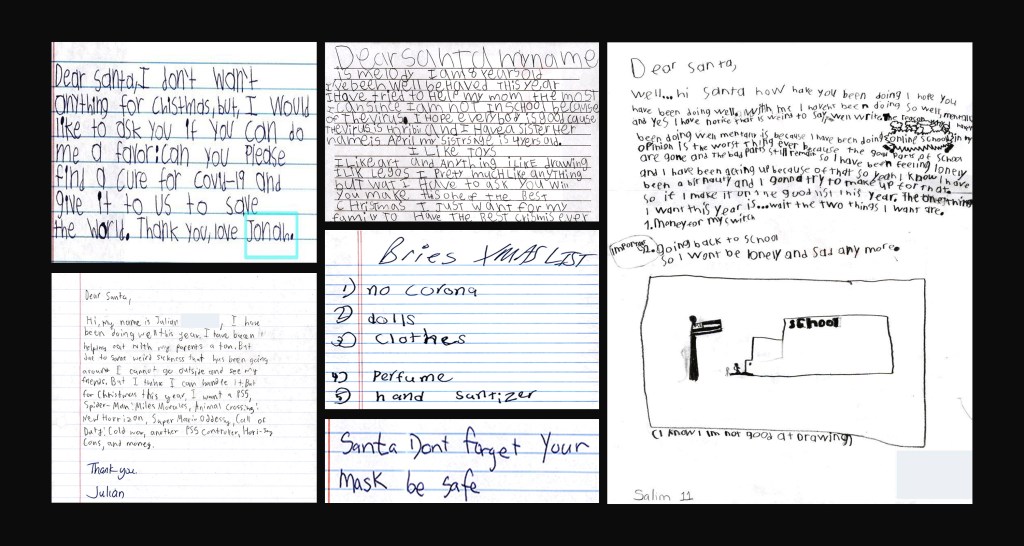 Dear Santa, I don't wan't
anything for chistmas, but, I would
like to ask you if you can do
me a favor: can you please
find a cure for covid-19 and
give it to us to save
the world. Thank you, love Jonah.
Dear santa my name
is melody I am 8 years old
I've been well behaved this year
I have tried to help my mom the most
I can since I am not in school because
of the virus. I hope everybody is good cause
the virus is horible and I have a sister Her
name is April my sistrs age is 4 years old.
I Like Toys
I Like art and anything I Like drawing
I LIK Legos I Pretty much Like anything
but wat I Have to ask you Will
you make this one of the Best
Christmas I Just want for my
family to Have the Best chismis ever
Dear santa,
well... hi santa how have you been doing I hope you
have been doing well. with me I havent been doing so well, mentally
and yes I have notice that is weird to say when write the reason why havent
been doing well mentally is because I have been doing online school in my
opinion is the worst thing ever because the good parts of school
are gone and the bad parts still remain so I have been feeling lonely
and I have been acting up because of that so yeah I know I have
been a bit naughty and I gonna try to make up for that.
so if I make it on the good list this year. The one thing
I want this year is...wait the two things I want are.
1. Money for my switch
important 2. Going back to school
so I wont be lonely and sad any more.
school
(I know I'm not good at drawing)
Salim 11
Dear Santa,
Hi, my name is Julian , I have
been doing well this year. I have been
helping out with my parents a ton. But
due to some weird sickness that has been going
around I cannot go outside and see my
friends. But I think I can handle it. But
for Christmas this year, I want a PS5,
Spider-Man: Miles Morales, Animal Crossing:
New Horrizon, Super Mario Oddessy, Call of
Duty: Cold war, another PS5 Controller, Hori-Joy
Cons, and money.
Thank you
Julian
Bries XMAS LIST
1) no corona
2) dolls
3) clothes
4) Perfume
5) hand sanitizer
Santa Dont forget your
mask be safe